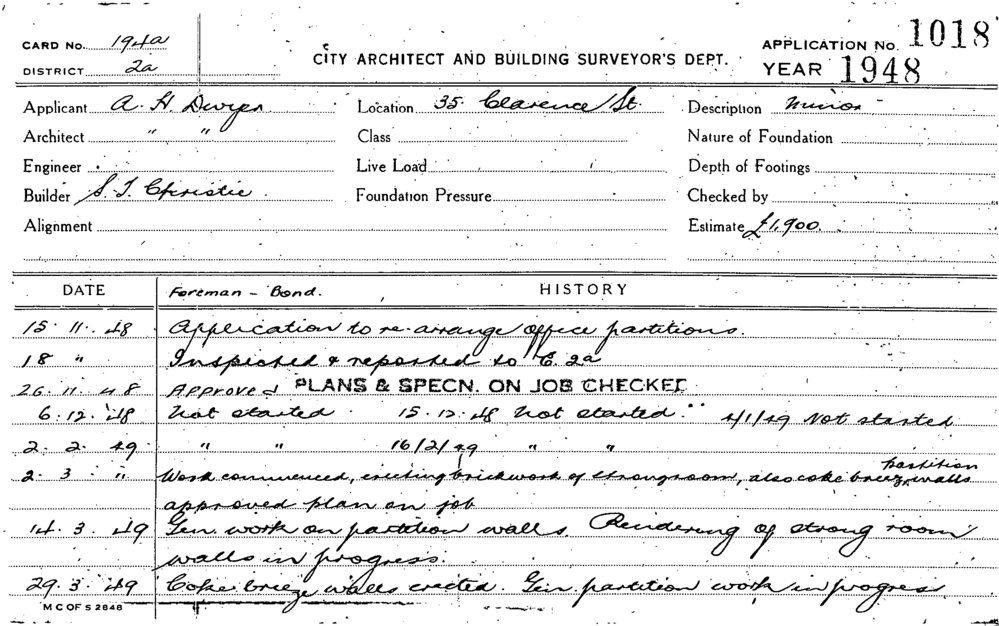 CARD No. 194a
DISTRICT 2a
CITY ARCHITECT AND BUILDING SURVEYOR'S DEPT.
APPLICATION No. 1018
YEAR 1948
Applicant A. H. Dwyer Location 35 Clarence St. Description Minor
Architect " " Class Nature of Foundation
Engineer Live Load Depth of Footings
Builder S. J. Christie Foundation Pressure Checked by
Alignment Estimate £1,900.
DATE Foreman - Bond. HISTORY
15. 11. 48 Application to re-arrange office partitions.
18 " Inspected & reported to C. 2a
26. 11. 48 Approved PLANS & SPECN. ON JOB CHECKED
6. 12. 48 Not started 15. 12. 48 Not started. 4/1/49 Not started
2. 2. 49 " " 16/2/49 " "
2 3 " Work commenced, erecting brickwork of strongroom, also coke breeze partition walls
approved plan on job
14. 3. 49 Gen. work on partition walls. Rendering of strong room
walls in progress.
29. 3. 49 Coke breeze walls erected. Gen. partition work in progress
M C OF S 2848